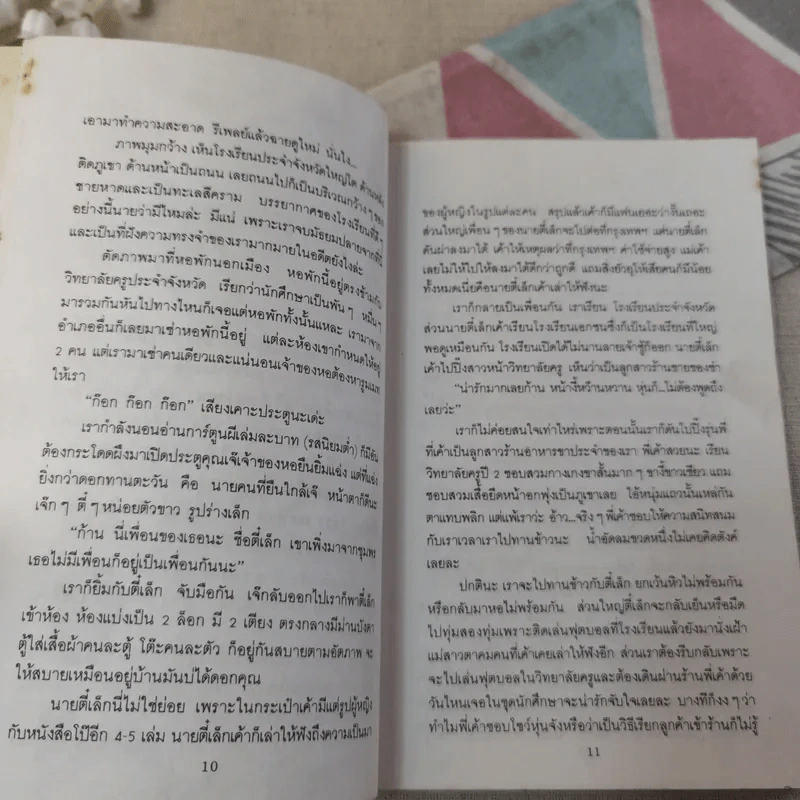 เอามาทำความสะอาด รีเพลย์แล้วฉายดูใหม่ นั่นไง...
ภาพมุมกว้าง เห็นโรงเรียนประจำจังหวัดใหญ่โต ด้านหลัง
ติดภูเขา ด้านหน้าเป็นถนน เลยถนนไปก็เป็นบริเวณกว้าง ๆ ของ
ชายหาดและเป็นทะเลสีคราม บรรยากาศของโรงเรียนที่ดี ๆ
อย่างนี้นายว่ามีไหมล่ะ มีแน่ เพราะเราจบมัธยมปลายจากที่นี่
และเป็นที่ฝังความทรงจำของเรามากมายในอดีตยังไงล่ะ
ตัดภาพมาที่หอพักนอกเมือง หอพักนี้อยู่ตรงข้ามกับ
วิทยาลัยครูประจำจังหวัด เรียกว่านักศึกษาเป็นพัน ๆ หมื่น ๆ
มารวมกันหันไปทางไหนก็เจอแต่หอพักทั้งนั้นแหละ เรามาจาก
อำเภออื่นก็เลยมาเช่าหอพักนี้อยู่ แต่ละห้องเขากำหนดให้อยู่
2 คน แต่เรามาเช่าคนเดียวและแน่นอนเจ้าของหอต้องหารูมเมท
ให้เรา
“ก๊อก ก๊อก ก๊อก” เสียงเคาะประตูนะเด่ะ
เรากำลังนอนอ่านการ์ตูนผีเล่มละบาท (รสนิยมต่ำ) ก็มีอัน
ต้องกระโดดผึงมาเปิดประตูคุณเจ๊เจ้าของหอยืนยิ้มแฉ่ง แต่ที่แฉ่ง
ยิ่งกว่าดอกทานตะวัน คือ นายคนที่ยืนใกล้เจ๊ หน้าตาก็ดีนะ
เจ๊ก ๆ ตี๋ ๆ หน่อยตัวขาว รูปร่างเล็ก
“ก้าน นี่เพื่อนของเธอนะ ชื่อตี๋เล็ก เขาเพิ่งมาจากชุมพร
เธอไม่มีเพื่อนก็อยู่เป็นเพื่อนกันนะ”
เราก็ยิ้มกับตี๋เล็ก จับมือกัน เจ๊กลับออกไปเราก็พาตี๋เล็ก
เข้าห้อง ห้องแบ่งเป็น 2 ล็อก มี 2 เตียง ตรงกลางมีม่านบังตา
ตู้ใส่เสื้อผ้าคนละตู้ โต๊ะคนละตัว ก็อยู่กันสบายตามอัตภาพ จะ
ให้สบายเหมือนอยู่บ้านมันบ่ได้ดอกคุณ
นายตี๋เล็กนี่ไม่ใช่ย่อย เพราะในกระเป๋าเค้ามีแต่รูปผู้หญิง
กับหนังสือโป๊อีก 4-5 เล่ม นายตี๋เล็กเค้าก็เล่าให้ฟังถึงความเป็นมา
10
ของผู้หญิงในรูปแต่ละคน สรุปแล้วเค้าก็มีแฟนเยอะว่างั้นเถอะ
ส่วนใหญ่เพื่อน ๆ ของนายตี๋เล็กจะไปต่อที่กรุงเทพฯ แต่นายตี๋เล็ก
ดันผ่าลงมาใต้ เค้าให้เหตุผลว่าที่กรุงเทพฯ ค่าใช้จ่ายสูง แม่เค้า
เลยไม่ให้ไปให้ลงมาใต้ดีกว่าถูกดี แถมสิ่งยั่วยุให้เสียคนก็มีน้อย
ทั้งหมดเนี่ยคือนายตี๋เล็กเค้าเล่าให้ฟังนะ
เราก็กลายเป็นเพื่อนกัน เราเรียน โรงเรียนประจำจังหวัด
ส่วนนายตี๋เล็กเค้าเรียนโรงเรียนเอกชนซึ่งก็เป็นโรงเรียนที่ใหญ่
พอดูเหมือนกัน โรงเรียนเปิดได้ไม่นานลายเจ้าชู้ก็ออก นายตี๋เล็ก
เค้าไปปิ๊งสาวหน้าวิทยาลัยครู เห็นว่าเป็นลูกสาวร้านขายของชำ
“น่ารักมากเลยก้าน หน้างี้หวานหวาน หุ่นก็...ไม่ต้องพูดถึง
เลยว่ะ”
เราก็ไม่ค่อยสนใจเท่าไหร่เพราะตอนนั้นเราก็ดันไปปิ๊งรุ่นพี่
ที่เค้าเป็นลูกสาวร้านอาหารขาประจำของเรา พี่เค้าสวยนะ เรียน
วิทยาลัยครูปี 2 ชอบสวมกางเกงขาสั้นมาก ๆ ขางี้ขาวเชียว แถม
ชอบสวมเสื้อยืดหน้าอกพุ่งเป็นภูเขาเลย ไอ้หนุ่มแถวนั้นเหล่กัน
ตาแทบพลิก แต่แพ้เราว่ะ อ้าว...จริง ๆ พี่เค้าชอบให้ความสนิทสนม
กับเราเวลาเราไปทานข้าวนะ น้ำอัดลมขวดหนึ่งไม่เคยคิดตังค์
เลยละ
ปกตินะ เราจะไปทานข้าวกับตี๋เล็ก ยกเว้นหิวไม่พร้อมกัน
หรือกลับมาหอไม่พร้อมกัน ส่วนใหญ่ตี๋เล็กจะกลับเย็นหรือมืด
ไปทุ่มสองทุ่มเพราะติดเล่นฟุตบอลที่โรงเรียนแล้วยังมานั่งเฝ้า
แม่สาวตาคมคนที่เค้าเคยเล่าให้ฟังอีก ส่วนเราต้องรีบกลับเพราะ
จะไปเล่นฟุตบอลในวิทยาลัยครูและต้องเดินผ่านร้านพี่เค้าด้วย
วันไหนเจอในชุดนักศึกษาจะน่ารักจับใจเลยละ บางทีก็งง ๆ ว่า
ทำไมพี่เค้าชอบโชว์หุ่นจังหรือว่าเป็นวิธีเรียกลูกค้าเข้าร้านก็ไม่รู้
11